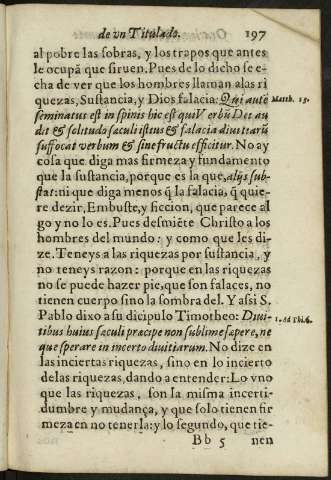 de vn Titulado. 197
al pobre las sobras, y los trapos que antes
le ocupã que siruen. Pues de lo dicho se e-
cha de ver que los hombres llaman a las ri
quezas, Sustancia, y Dios falacia: Qui autẽ Matth. 13.
seminatus est in spinis hic est qui Verbũ Dei au
dit & solitudo sæculi istius & falacia diuitiarũ
suffocat verbum & sine fructu efficitur. No ay
cosa que diga mas firmeza y fundamento
que la sustancia, porque es la que, alijs sub-
stat: ni que diga menos q̃ la falacia, q̃ quie-
re dezir, Embuste, y ficcion, que parece al
go y no lo es. Pues desmiẽte Christo a los
hombres del mundo: y como que les di-
ze. Teneys a las riquezas por sustancia, y
no teneys razon: porque en las riquezas
no se puede hazer pie, que son falaces, no
tienen cuerpo sino la sombra del. Y assi S.
Pablo dixo a su dicipulo Timotheo: Diui- 1. Ad Thi. 6.
tibus huius sæculi præcipe non sublime sapere, ne
que sperare in incerto diuitiarum. No dize en
las inciertas riquezas, sino en lo incierto
de las riquezas, dando a entender: Lo vno
que las riquezas, son la misma incerti-
dumbre y mudança, y que solo tienen fir
meza en no tenerla: y lo segundo, que tie-
Bb 5 nen